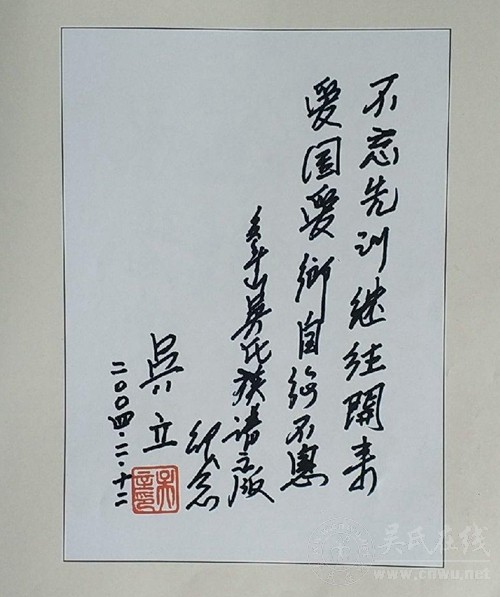 不忘先训继往開来
愛国愛鄉自強不息
山吴氏族谱出版
纪念
吴立
二〇〇四.二.十二
吴氏在线
www.cnwu.net